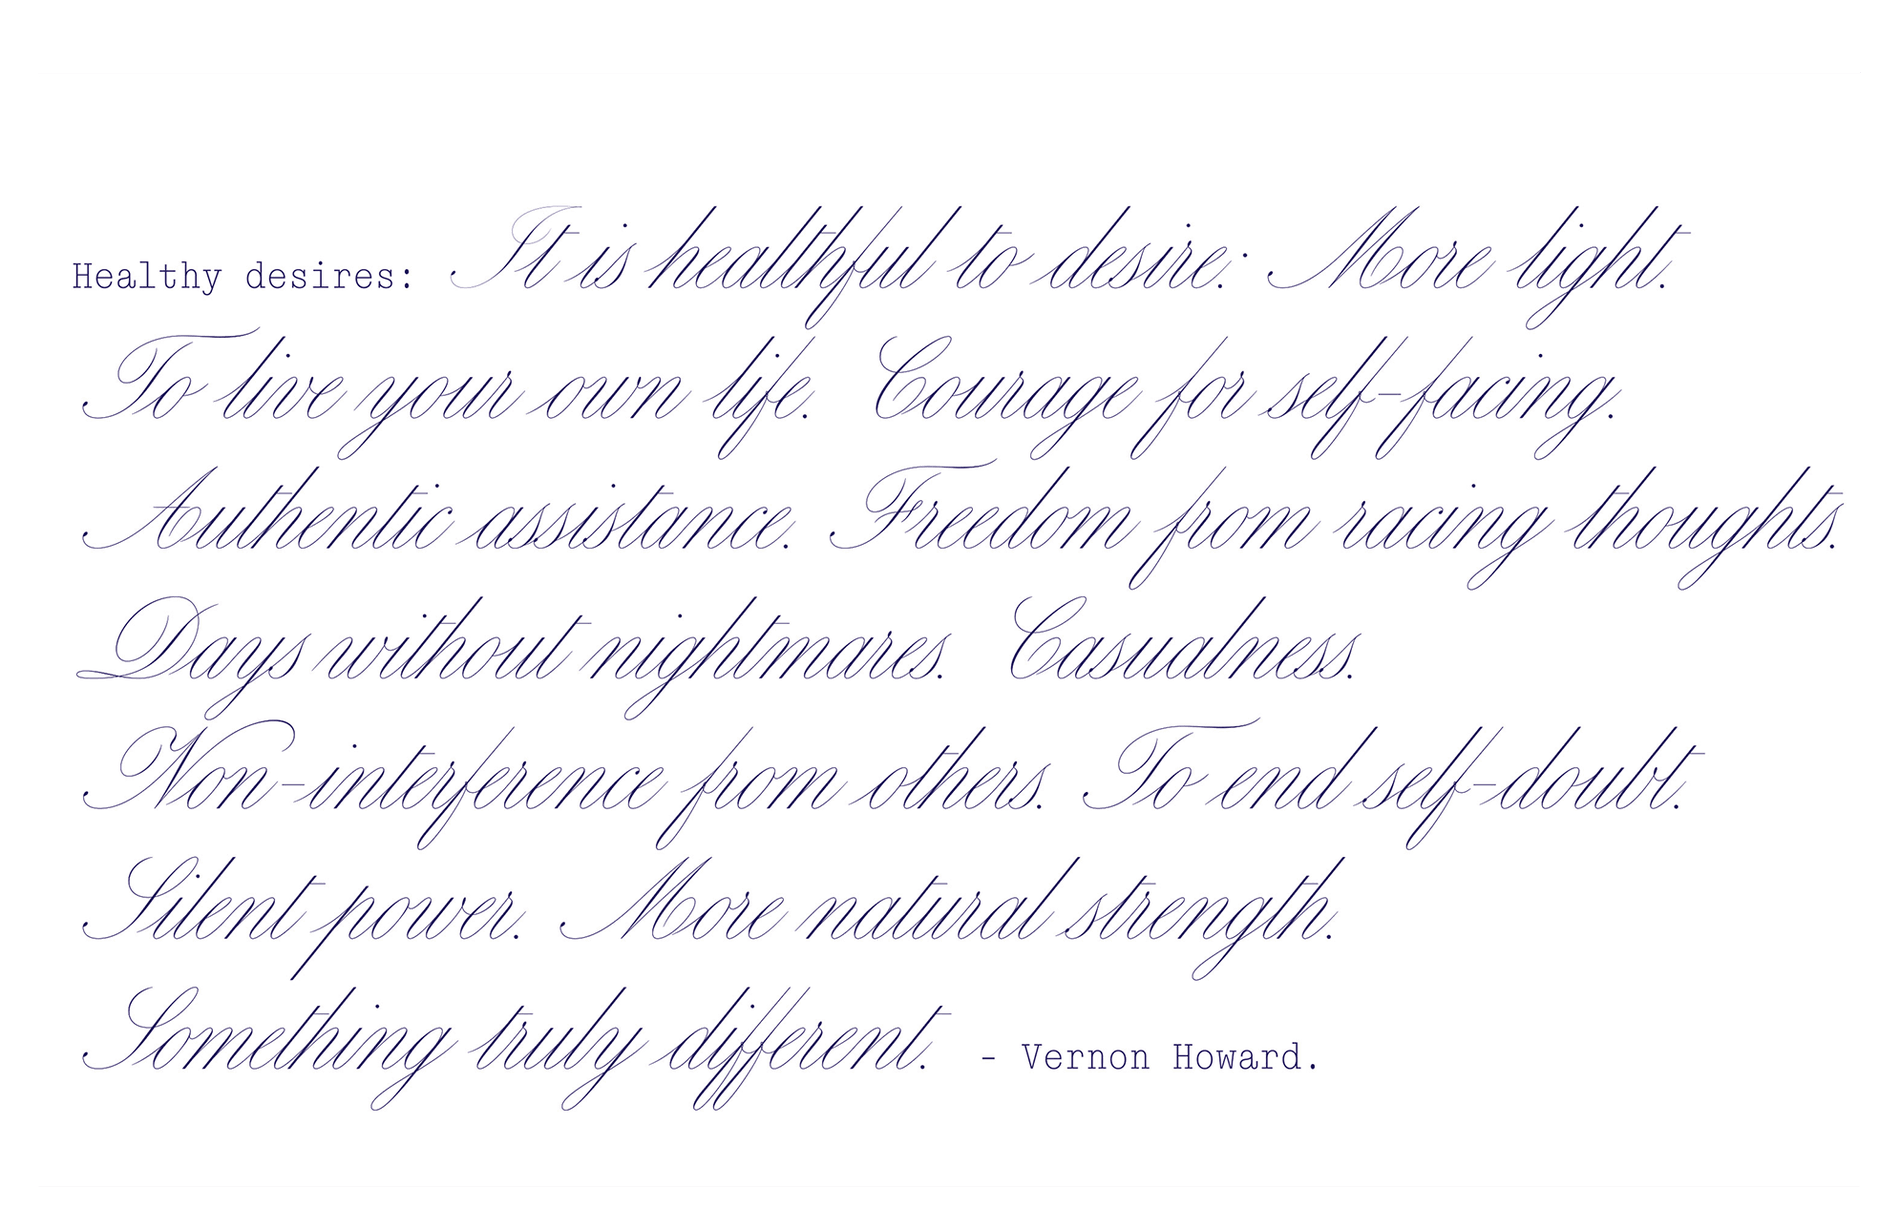 Healthy desires: It is healthful to desire: More light.
To live your own life. Courage for self-facing.
Authentic assistance. Freedom from racing thoughts.
Days without nightmares. Casualness.
Non-interference from others. To end self-doubt.
Silent power. More natural strength.
Something truly different. - Vernon Howard.